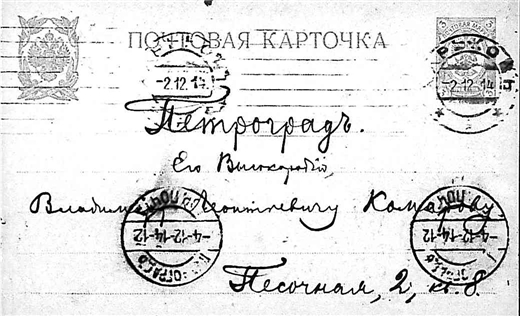 ПОЧТОВАЯ КАРТОЧКА
3
3
-2.12.14
2 12 14
Петроградъ.
Его Высокородiю,
Владимiру Леонтьевичу Комарову
-4-12-14-12
-4-12-14-12
Песочная, 2, кв. 8.